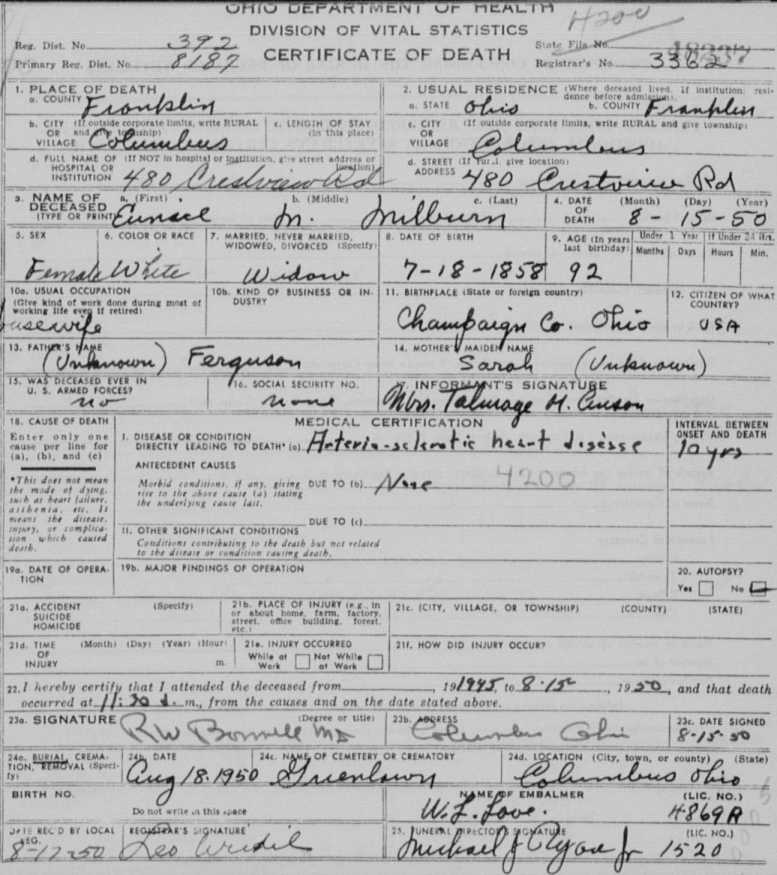 OHIO DEPARTMENT OF HEALTH
DIVISION OF VITAL STATISTICS
CERTIFICATE OF DEATH
4200
Reg. Dist. No. 392
Primary Reg. Dist. No. 8187
State File No.
Registrar's No. 3362
1. PLACE OF DEATH
a. COUNTY Franklin
b. CITY (If outside corporate limits, write RURAL
OR and give township)
VILLAGE Columbus
c. LENGTH OF STAY
(in this place)
d. FULL NAME OF (If NOT in hospital or institution, give street address or
location)
HOSPITAL OR
INSTITUTION 480 Crestview Rd
2. USUAL RESIDENCE (Where deceased lived. If institution: resi-
dence before admission).
a. STATE Ohio b. COUNTY Franklin
c. CITY (If outside corporate limits, write RURAL and give township)
OR
VILLAGE Columbus
d. STREET (If rural, give location)
ADDRESS 480 Crestview Rd
3. NAME OF
DECEASED
(TYPE OR PRINT)
a. (First) b. (Middle) M. c. (Last) Milburn
4. DATE
OF
DEATH
(Month) (Day) (Year)
8 - 15 - 50
5. SEX
Female
6. COLOR OR RACE
White
7. MARRIED, NEVER MARRIED,
WIDOWED, DIVORCED (Specify)
Widow
8. DATE OF BIRTH
7-18-1858
9. AGE (In years
last birthday)
92
Under 1 Year
Months Days
If Under 24 Hrs.
Hours Min.
10a. USUAL OCCUPATION
(Give kind of work done during most of
working life even if retired)
ousewife
10b. KIND OF BUSINESS OR IN-
DUSTRY
11. BIRTHPLACE (State or foreign country)
Champaign Co. Ohio
12. CITIZEN OF WHAT
COUNTRY?
USA
13. FATHER'S NAME
(Unknown) Ferguson
14. MOTHER'S MAIDEN NAME
Sarah (Unknown)
15. WAS DECEASED EVER IN
U. S. ARMED FORCES?
no
16. SOCIAL SECURITY NO.
none
17. INFORMANT'S SIGNATURE
Mrs. Talmage H.
18. CAUSE OF DEATH
Enter only one
cause per line for
(a), (b), and (c)
*This does not mean
the mode of dying,
such as heart failure,
asthenia, etc. It
means the disease,
injury, or complica-
tion which caused
death.
MEDICAL CERTIFICATION
I. DISEASE OR CONDITION
DIRECTLY LEADING TO DEATH* (a) Arterio-sclerotic heart disease
ANTECEDENT CAUSES
Morbid conditions, if any, giving
rise to the above cause (a) stating
the underlying cause last.
DUE TO (b) None 4200
DUE TO (c)
II. OTHER SIGNIFICANT CONDITIONS
Conditions contributing to the death but not related
to the disease or condition causing death.
INTERVAL BETWEEN
ONSET AND DEATH
10 yrs
19a. DATE OF OPERA-
TION
19b. MAJOR FINDINGS OF OPERATION
20. AUTOPSY?
Yes No
21a. ACCIDENT (Specify)
SUICIDE
HOMICIDE
21b. PLACE OF INJURY (e.g., in
or about home, farm, factory,
street, office building, forest,
etc.)
21c. (CITY, VILLAGE, OR TOWNSHIP) (COUNTY) (STATE)
21d. TIME (Month) (Day) (Year) (Hour)
OF
INJURY m.
21e. INJURY OCCURRED
While at Work Not While at Work
21f. HOW DID INJURY OCCUR?
22. I hereby certify that I attended the deceased from , 19 1945, to 8-15, 1950, and that death
occurred at 11:30 a. m., from the causes and on the date stated above.
23a. SIGNATURE (Degree or title)
RW Bonnell MD
23b. ADDRESS
Columbus Ohio
23c. DATE SIGNED
8-15-50
24a. BURIAL, CREMA-
TION, REMOVAL (Speci-
fy)
24b. DATE
Aug 18. 1950
24c. NAME OF CEMETERY OR CREMATORY
Greenlawn
24d. LOCATION (City, town, or county) (State)
Columbus Ohio
BIRTH NO.
Do not write in this space
NAME OF EMBALMER
W. L. Love.
(LIC. NO.)
4869A
DATE REC'D BY LOCAL
REG.
8-17-50
REGISTRAR'S SIGNATURE
Leo
25. FUNERAL DIRECTOR'S SIGNATURE
Michael J Ryan Jr
(LIC. NO.)
1520